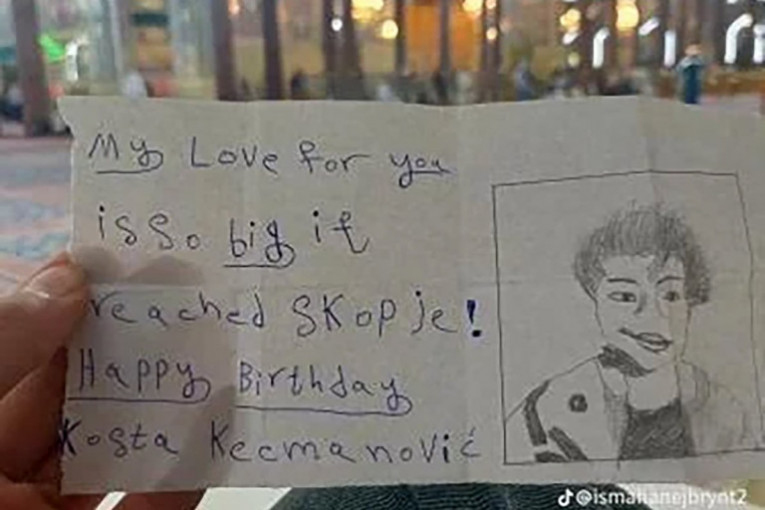 My Love for you
is so big it
reached Skopje!
Happy Birthday
Kosta Kecmanović
@ismahanejbrynt2